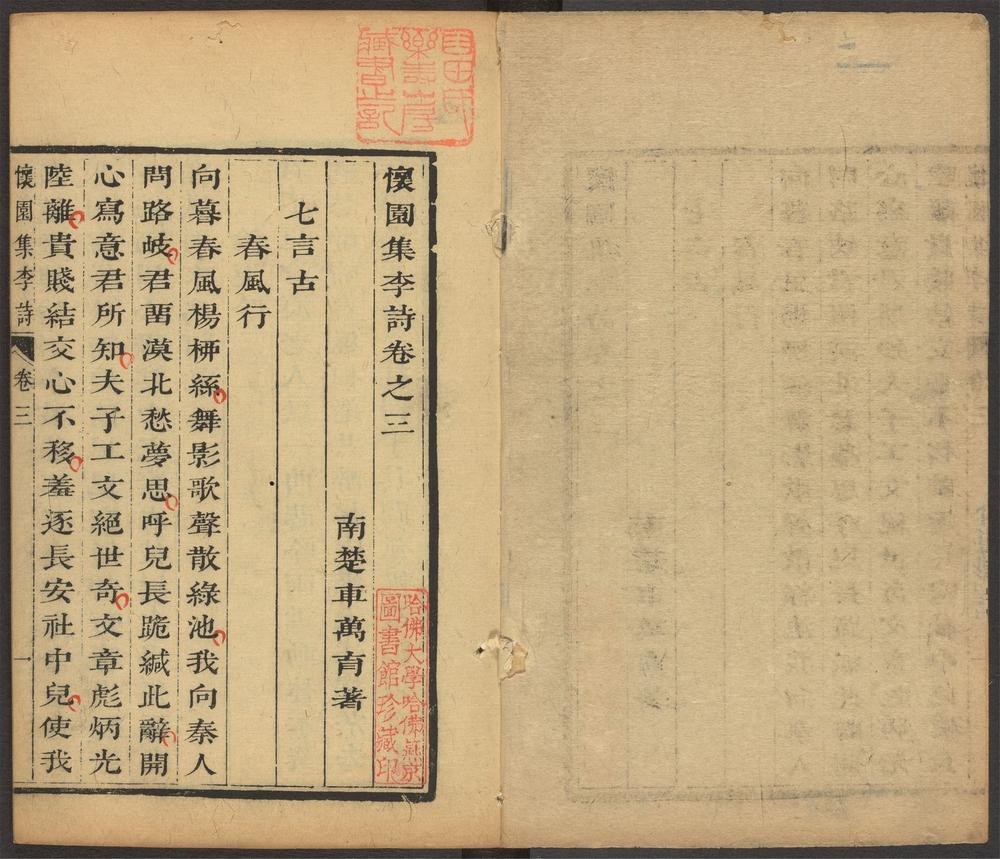 懷園集李詩卷之三
南楚車萬育著
七言古
春風行
向暮春風楊柳絲舞影歌聲散綠池我向秦人
問路岐君畱漠北愁夢思呼兒長跪緘此辭開
心寫意君所知夫子工文絕世奇文章彪炳光
陸離貴賤結交心不移羞逐長安社中兒使我
懷園集李詩 卷三 一
藏書記
哈佛大學哈佛燕京
圖書館珍藏印